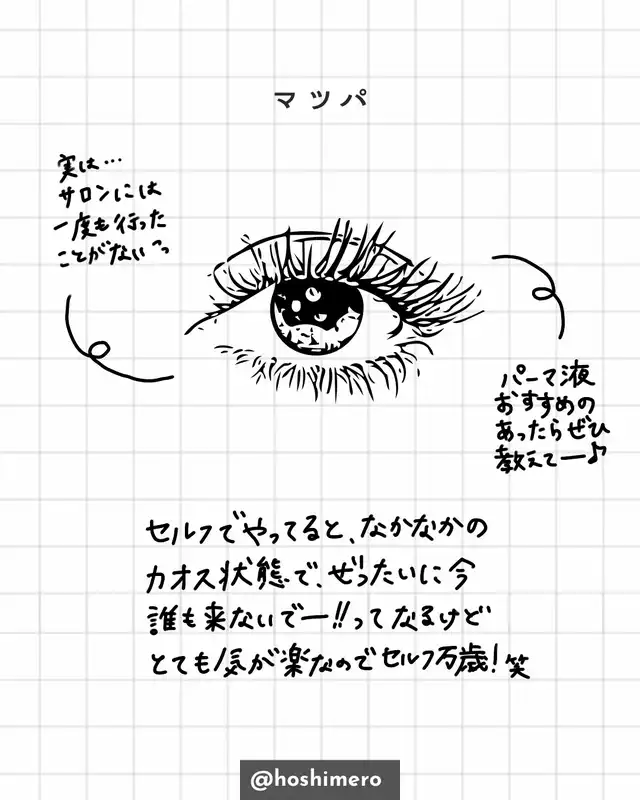 マツパ
実は…
サロンには
一度も行った
ことがないっ
パーマ液
おすすめの
あったらぜひ
教えてー♪
セルフでやってると、なかなかの
カオス状態で、ぜったいに今
誰も来ないでー!!ってなるけど
とても気が楽なのでセルフ万歳!笑
@hoshimero